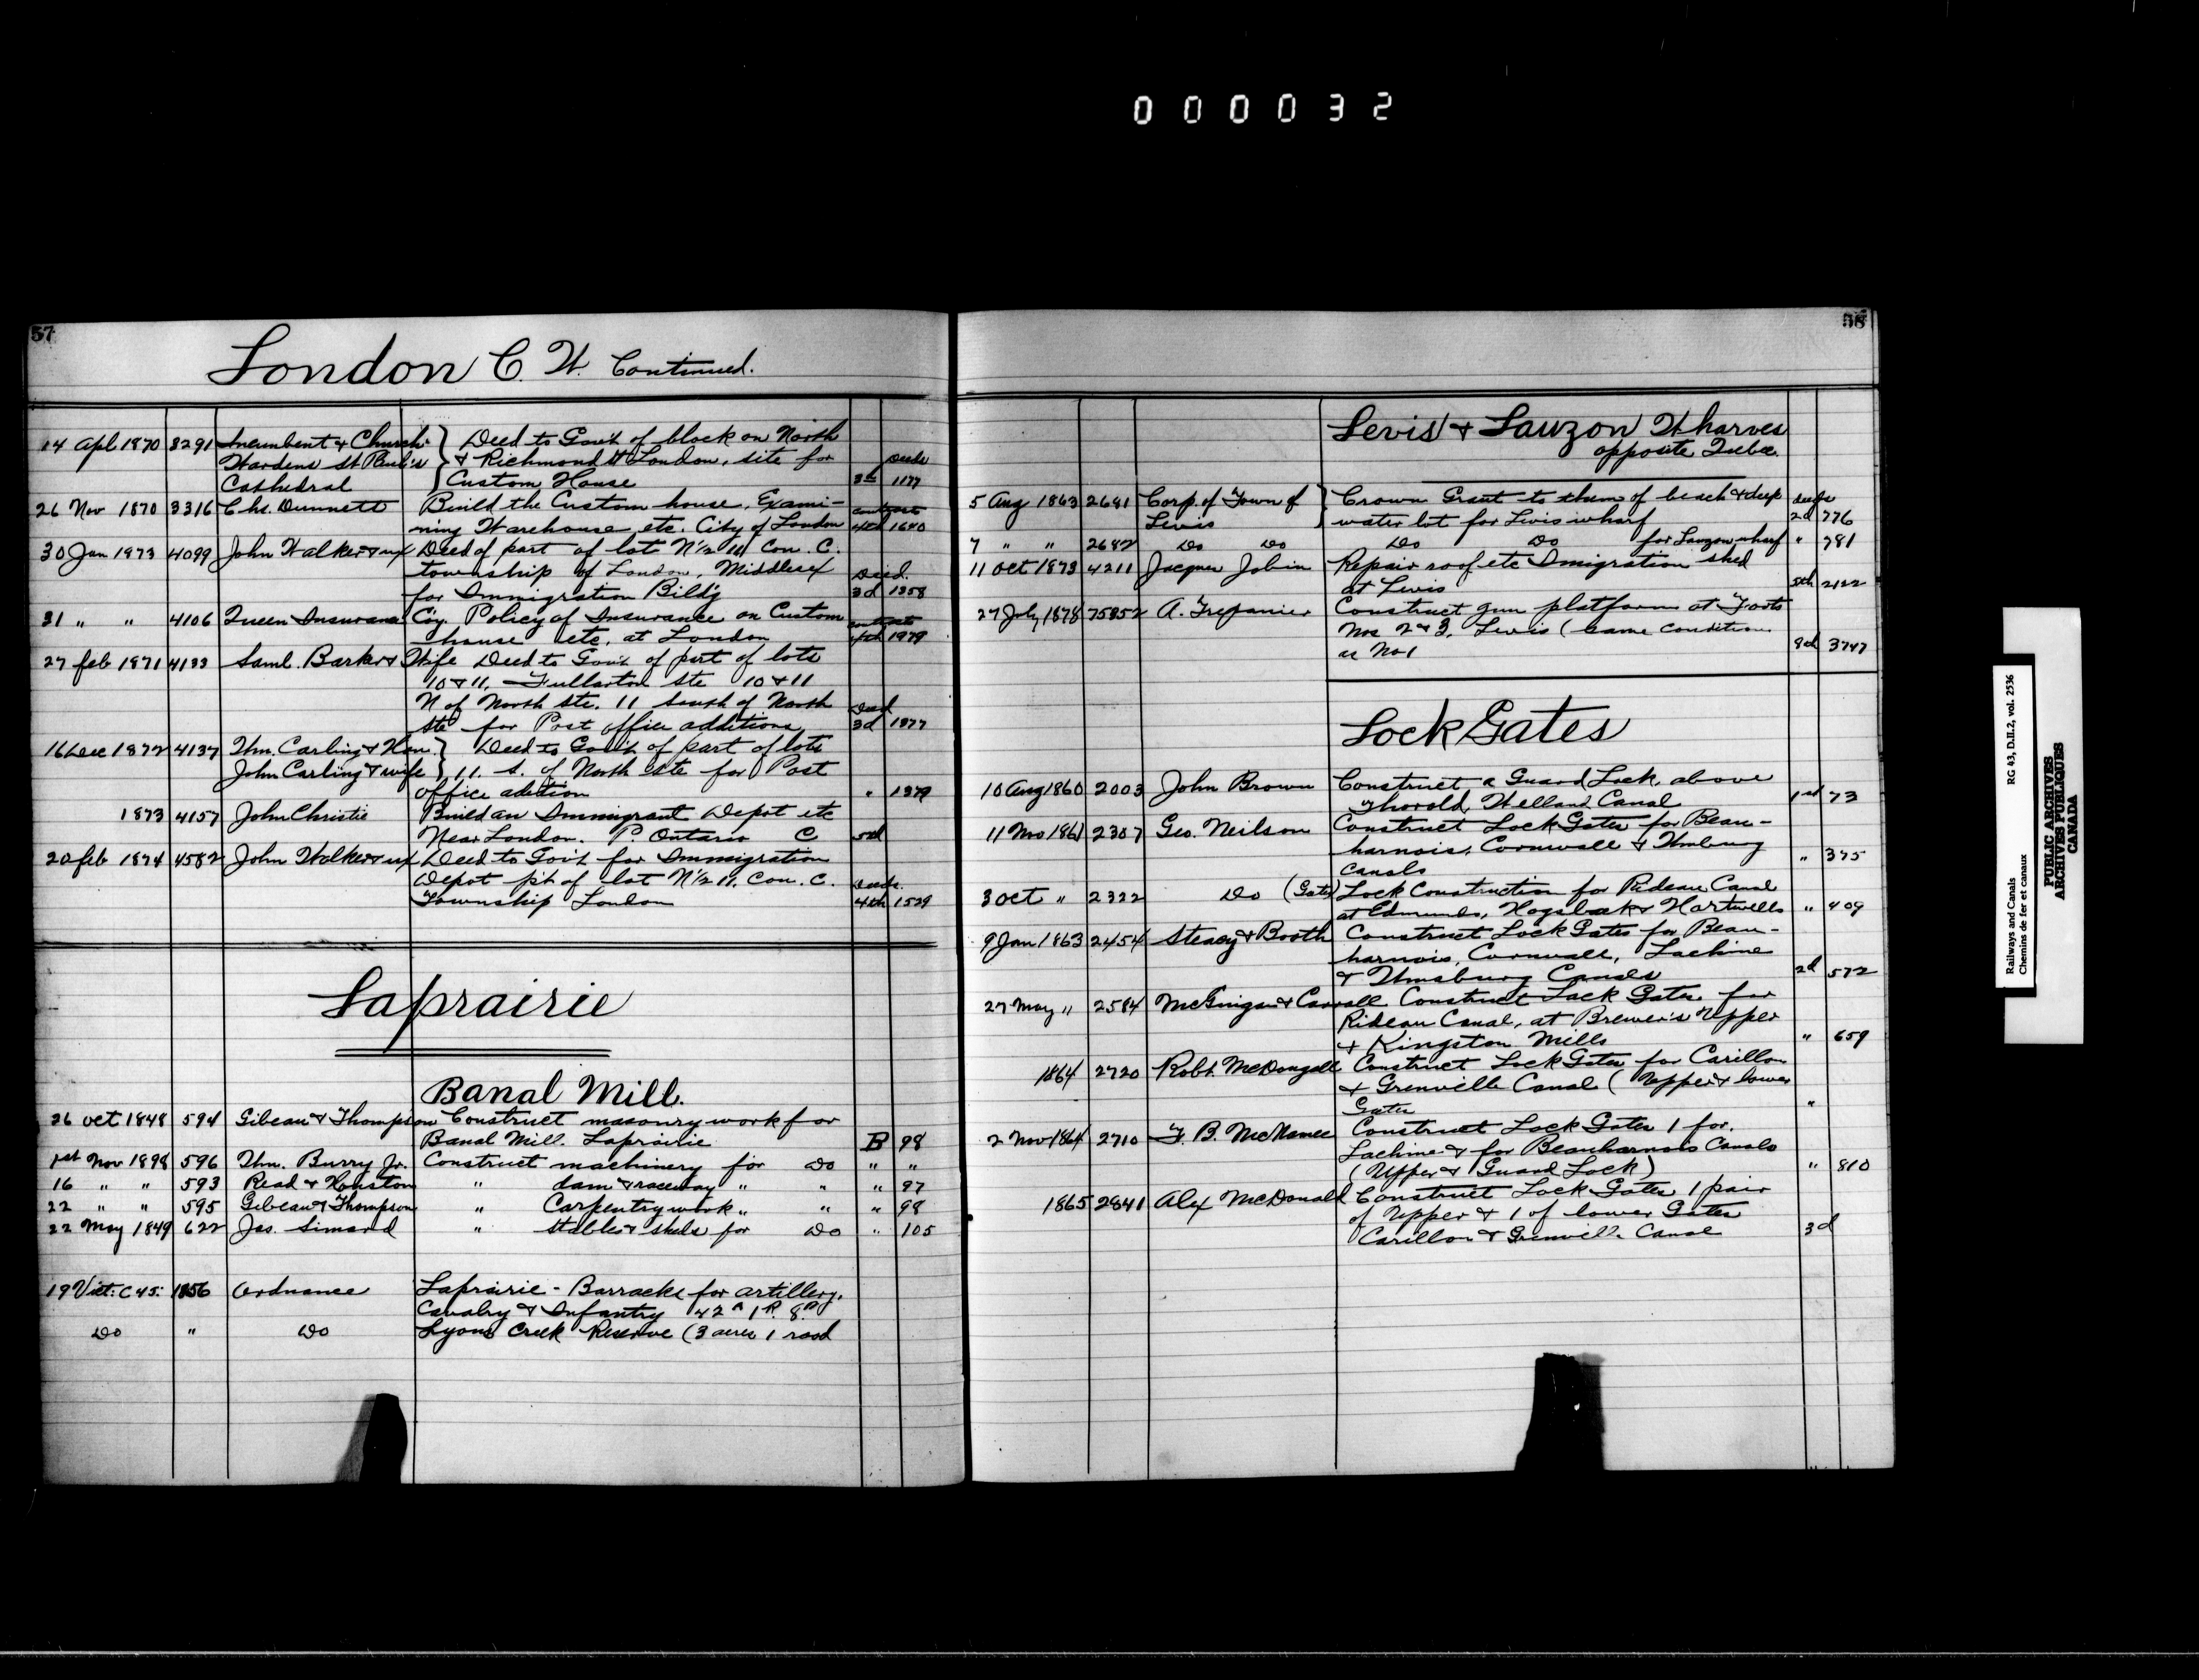 000032
57
London C. W. Continued.
14 Apl 1870 3291 Incumbent & Church } Deed to Gov't of block on North
Wardens St Paul's } & Richmond St London, site for Deeds
Cathedral } Custom House 3d 1177
26 Nov 1870 3316 Chs. Dunnett Build the Custom house, Exami- contracts
ning Warehouse etc. City of London 4th 1640
30 Jan 1873 4099 John Walker & ux Deed of part of lot N 1/2 11 Con. C.
township of London, Middlesex Deed.
for Immigration Bild'g 3d 1358
31 " " 4106 Queen Insurance Co'y. Policy of Insurance on Custom contracts
house etc, at London 4th 1979
27 feb 1871 4133 Saml. Barker & Wife Deed to Gov't of part of lots
10 & 11, Fullarton Sts 10 & 11
N of North Sts. 11 South of North Deed
Sts for Post office additions 3d 1377
16 Dec 1872 4137 Wm. Carling & Hon. } Deed to Gov't of part of lots
John Carling & wife } 11. S. of North Sts for Post
office adition " 1379
1873 4157 John Christie Build an Immigrant Depot etc
Near London. P. Ontario C 5th
20 feb 1874 4582 John Walker & ux Deed to Gov't for Immigration
Depot p't of lot N 1/2 11, Con. C. Deeds.
Township London 4th 1529
Laprairie
Banal Mill.
26 oct 1848 594 Gibeau & Thompson Construct masonry work for
Banal Mill. Laprairie B 98
1st Nov 1898 596 Thm. Burry Jr. Construct machinery for Do " "
16 " " 593 Read & Houston " dam & raceway " " " 97
22 " " 595 Gibeau & Thompson " Carpentry work " " " 98
22 May 1849 622 Jas. Simard " Stables & sheds for Do " 105
19 Vict: C 45: 1856 Ordnance Laprairie - Barracks for artillery.
Cavalry & Infantry 42 A 1 R. 8 P
Do " Do Lyons Creek Reserve (3 acres 1 rood
58
Levis & Lauzon Wharves
opposite Quebec.
5 Aug 1863 2681 Corp. of Town of } Crown Grant to them of beach & deep deeds
Levis } water lot for Levis wharf 2d 776
7 " " 2682 Do Do Do Do for Lauzon wharf " 781
11 Oct 1873 4211 Jacques Jobin Repair roof etc Imigration shed
at Levis 5th 2122
27 July 1878 75852 A. Trepanier Construct gun platform at Forts
Nos 2 & 3, Levis (same condition
as No 1 8th 3747
Lock Gates
10 Aug 1860 2003 John Brown Construct a Guard Lock, above
Thorold, Welland Canal 1st 73
11 Nov 1861 2307 Geo. Neilson Construct Lock Gates for Beau-
harnois, Cornwall & Wmsburg
Canals " 375
3 Oct " 2322 Do (Gates) Lock Construction for Rideau Canal
at Edmunds, Hogsback & Hartwells " 409
9 Jan 1863 2454 Steacy & Booth Construct Lock Gates for Beau-
harnois, Cornwall, Lachine
& Wmsburg Canals 2d 572
27 May " 2584 McGuigan & Carroll Construct Lock Gates for
Rideau Canal, at Brewer's Upper
& Kingston Mills " 659
1864 2720 Robt. McDongall Construct Lock Gates for Carillon
& Grenville Canal (Upper & lower
Gates "
2 Nov 1864 2710 F. B. McNamee Construct Lock Gates 1 for.
Lachine & for Beauharnois Canals
(Upper & Guard Lock) " 810
1865 2841 Alex McDonald Construct Lock Gates 1 pair
of Upper & 1 of lower Gates
Carillon & Grenville Canal 3d
Railways and Canals RG 43, D.II.2, vol. 2536
Chemins de fer et canaux
PUBLIC ARCHIVES
ARCHIVES PUBLIQUES
CANADA